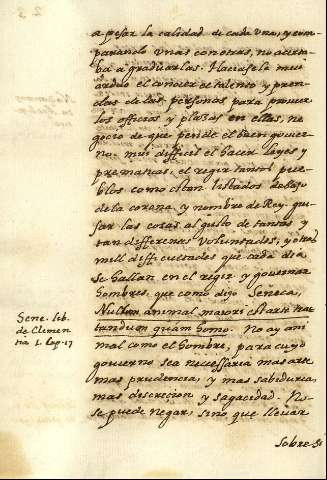 a pesar la calidad de cada una, y com
parando unas con otras, no acerta
ba a graduarlas. Haciasele mui
arduo el conocer de talento y pren
das de las personas para proveer
los officios y plazas en ellas, ne
gocio de que pende el buen govier
no. mui difficil el hacer leyes y
premaricas, el regir tantos pue
blos como estan debajo
de la corona y nombre de Rey. gui
sar las cosas al gusto de tantas y
tan differentes voluntades, y otras
mill difficultades que cada dia
se hallan en el regir y governar
hombres, que como dijo Seneca,
Nullum animal maiori est arte trac
tandum quam homo. No ay ani
mal como el hombre, para cuyo
govierno sea necessaria mas arte
mas prudencia, y mas sabiduria,
mas discrecion y sagacidad. No
se puede negar, sino que llevar
Sene. lib.
de Clemen
tia 1. cap. 17
sobre-si